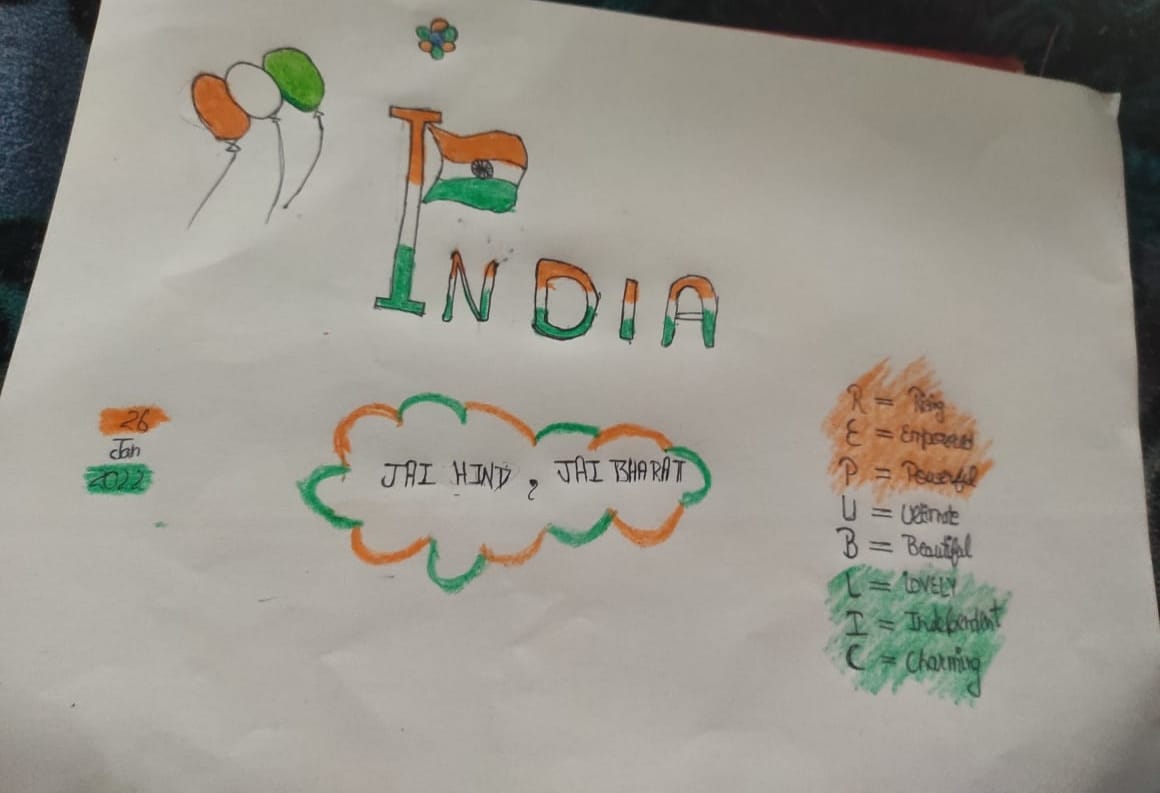 INDIA
26
Jan
2022
JAI HIND, JAI BHARAT
R = Rising
E = Empowered
P = Powerful
U = Ultimate
B = Beautiful
L = LOVELY
I = Independent
C = Charming